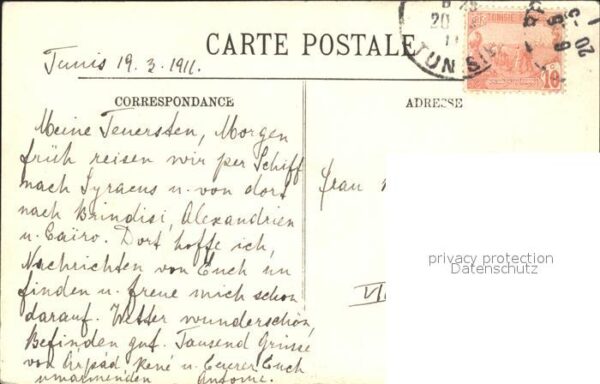 CARTE POSTALE
Tunis 19.3.1911.
CORRESPONDANCE
Meine Teuersten, Morgen
früh reisen wir per Schiff
nach Syracus u. von dort
nach Brindisi, Alexandrien
u. Caïro. Dort hoffe ich,
Nachrichten von Euch zu
finden u. freue mich schon
darauf. Wetter wunderschön,
Befinden gut. Tausend Grüsse
von Árpád, René u. Eurer Euch
umarmenden Antonie.
ADRESSE
Frau
TUNISIE
10
TUNIS
privacy protection
Datenschutz